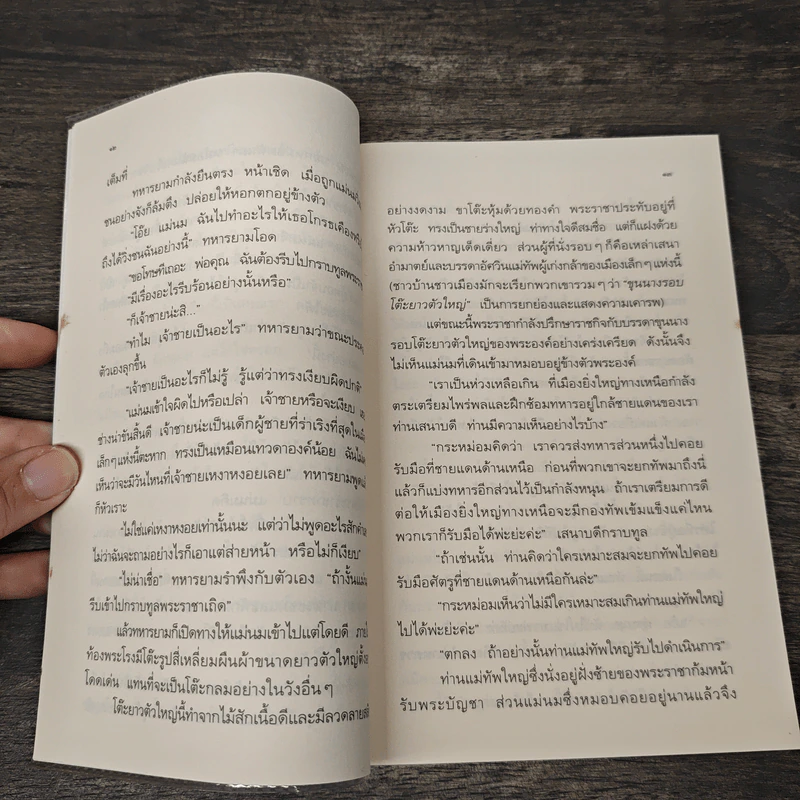 ๑๒
เต็มที่
ทหารยามกำลังยืนตรง หน้าเชิด เมื่อถูกแม่นม
ชนอย่างจังก็ล้มตึง ปล่อยให้หอกตกอยู่ข้างตัว
"โอ๊ย แม่นม ฉันไปทำอะไรให้เธอโกรธเคือง
ถึงได้วิ่งชนฉันอย่างนี้" ทหารยามโอด
"ขอโทษทีเถอะ พ่อคุณ ฉันต้องรีบไปกราบทูลพระราชา
"มีเรื่องอะไรรีบร้อนอย่างนั้นหรือ"
"ก็เจ้าชายน่ะสิ..."
"ทำไม เจ้าชายเป็นอะไร" ทหารยามว่าขณะ
ตัวเองลุกขึ้น
"เจ้าชายเป็นอะไรก็ไม่รู้ รู้แต่ว่าทรงเงียบผิดปกติ"
"แม่นมเข้าใจผิดไปหรือเปล่า เจ้าชายหรือจะเงียบ
ช่างน่าขันสิ้นดี เจ้าชายน่ะเป็นเด็กผู้ชายที่ร่าเริงที่สุดใน
เล็กๆ แห่งนี้ตะหาก ทรงเป็นเหมือนเทวดาองค์น้อย ฉัน
เห็นว่าจะมีวันไหนที่เจ้าชายเหงาหงอยเลย" ทหารยาม
ก็หัวเราะ
"ไม่ใช่แค่เหงาหงอยเท่านั้นนะ แต่ว่าไม่พูดอะไรสักคำ
ไม่ว่าฉันจะถามอย่างไรก็เอาแต่ส่ายหน้า หรือไม่ก็เงียบ"
"ไม่น่าเชื่อ" ทหารยามรำพึงกับตัวเอง "ถ้างั้น
รีบเข้าไปกราบทูลพระราชาเถิด"
แล้วทหารยามก็เปิดทางให้แม่นมเข้าไปแต่โดยดี
ท้องพระโรงมีโต๊ะรูปสี่เหลี่ยมผืนผ้าขนาดยาวตัวใหญ่
โดดเด่น แทนที่จะเป็นโต๊ะกลมอย่างในวังอื่นๆ
โต๊ะยาวตัวใหญ่นี้ทำจากไม้สักเนื้อดีและมีลวดลาย
๑๓
อย่างงดงาม ขาโต๊ะหุ้มด้วยทองคำ พระราชาประทับอยู่ที่
หัวโต๊ะ ทรงเป็นชายร่างใหญ่ ท่าทางใจดีสมชื่อ แต่ก็แฝงด้วย
ความห้าวหาญเด็ดเดี่ยว ส่วนผู้ที่นั่งรอบๆ ก็คือเหล่าเสนา
อำมาตย์และบรรดาอัศวินแม่ทัพผู้เก่งกล้าของเมืองเล็กๆ แห่งนี้
(ชาวบ้านชาวเมืองมักจะเรียกพวกเขารวมๆ ว่า "ขุนนางรอบ
โต๊ะยาวตัวใหญ่" เป็นการยกย่องและแสดงความเคารพ)
แต่ขณะนี้พระราชากำลังปรึกษาราชกิจกับบรรดาขุนนาง
รอบโต๊ะยาวตัวใหญ่ของพระองค์อย่างเคร่งเครียด ดังนั้นจึง
ไม่เห็นแม่นมที่เดินเข้ามาหมอบอยู่ข้างตัวพระองค์
"เราเป็นห่วงเหลือเกิน ที่เมืองยิ่งใหญ่ทางเหนือกำลัง
ตระเตรียมไพร่พลและฝึกซ้อมทหารอยู่ใกล้ชายแดนของเรา
ท่านเสนาบดี ท่านมีความเห็นอย่างไรบ้าง"
"กระหม่อมคิดว่า เราควรส่งทหารส่วนหนึ่งไปคอย
รับมือที่ชายแดนด้านเหนือ ก่อนที่พวกเขาจะยกทัพมาถึงนี่
แล้วก็แบ่งทหารอีกส่วนไว้เป็นกำลังหนุน ถ้าเราเตรียมการดี
ต่อให้เมืองยิ่งใหญ่ทางเหนือจะมีกองทัพเข้มแข็งแค่ไหน
พวกเราก็รับมือได้พ่ะย่ะค่ะ" เสนาบดีกราบทูล
"ถ้าเช่นนั้น ท่านคิดว่าใครเหมาะสมจะยกทัพไปคอย
รับมือศัตรูที่ชายแดนด้านเหนือกันล่ะ"
"กระหม่อมเห็นว่าไม่มีใครเหมาะสมเกินท่านแม่ทัพใหญ่
ไปได้พ่ะย่ะค่ะ"
"ตกลง ถ้าอย่างนั้นท่านแม่ทัพใหญ่รับไปดำเนินการ"
ท่านแม่ทัพใหญ่ซึ่งนั่งอยู่ฝั่งซ้ายของพระราชาก้มหน้า
รับพระบัญชา ส่วนแม่นมซึ่งหมอบคอยอยู่นานแล้วจึง